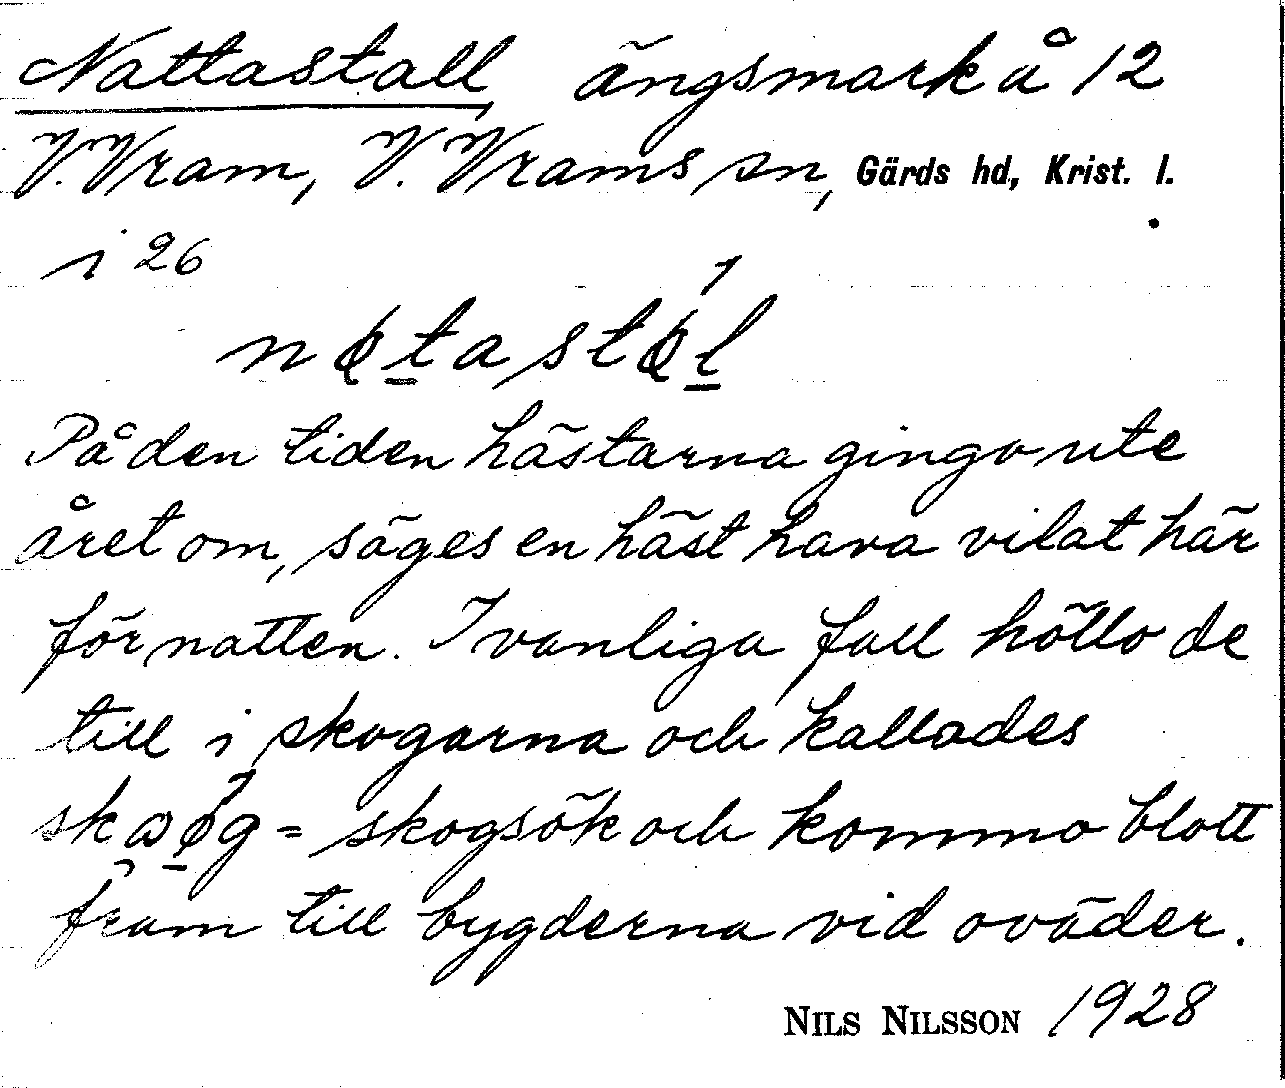 Nattastall, ängsmark å 12
V. Vram, V. Vrams sn, Gärds hd, Krist. l.
i 26
På den tiden hästarna gingo ute
året om, säges en häst hava vilat här
för natten. I vanliga fall höllo de
till i skogarna och kallades
= skogsök och kommo blott
fram till bygderna vid oväder.
NILS NILSSON 1928